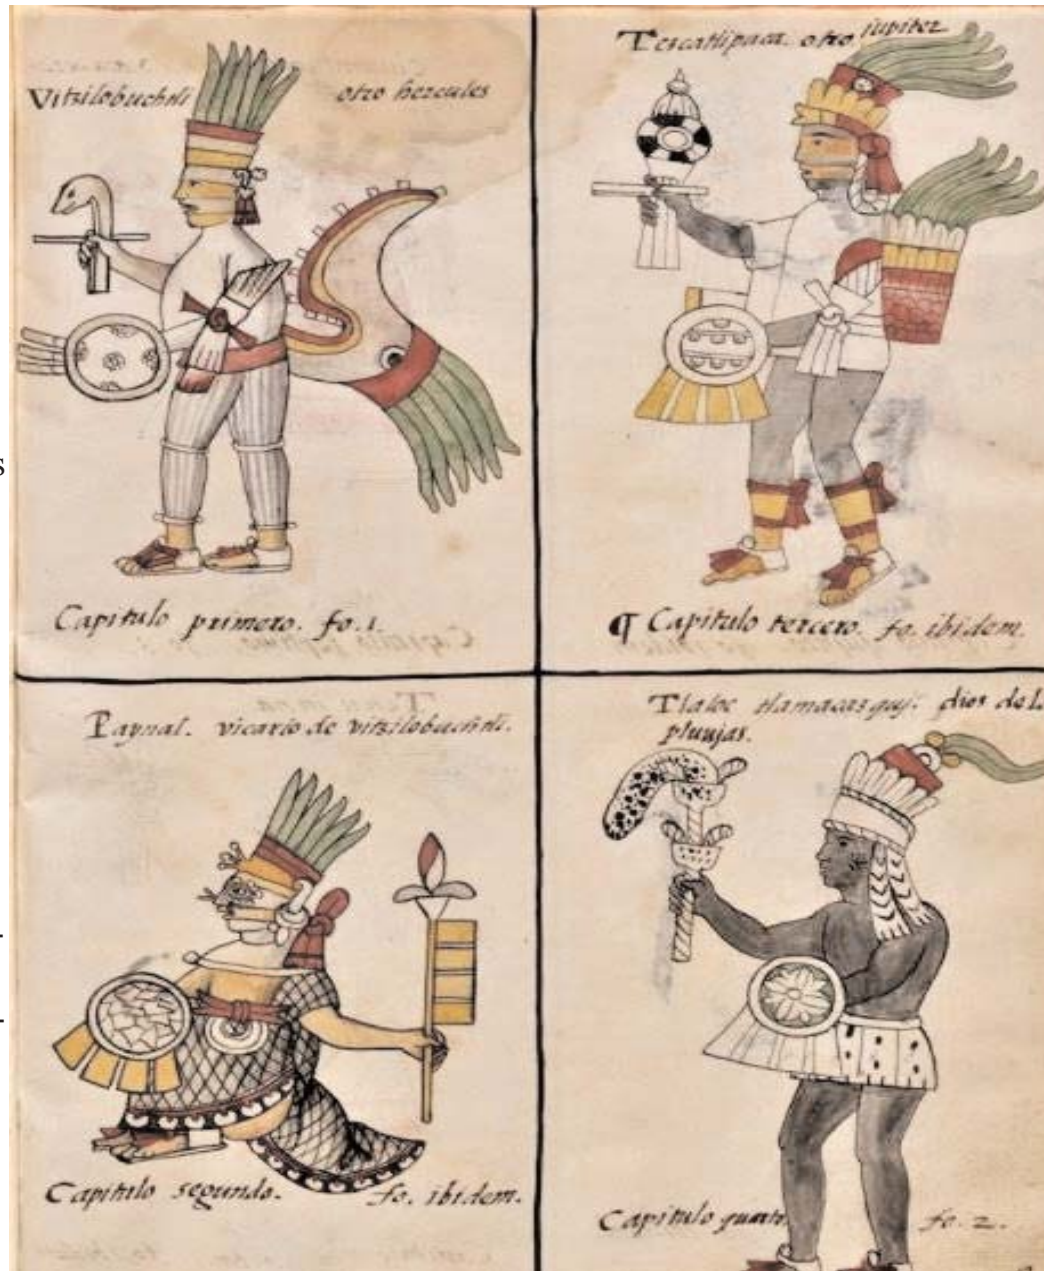 Vitzilobuchtli otro hercules
Capitulo primero. fo. 1.
Tezcatlipuca. otro iupiter
¶ Capitulo tercero. fo. ibidem.
Paynal. vicario de vitzilobuchtli.
Capitulo segundo. fo. ibidem.
Tlaloc tlamacazquj. dios de la
pluujas.
Capitulo quarto. fo. 2.
s